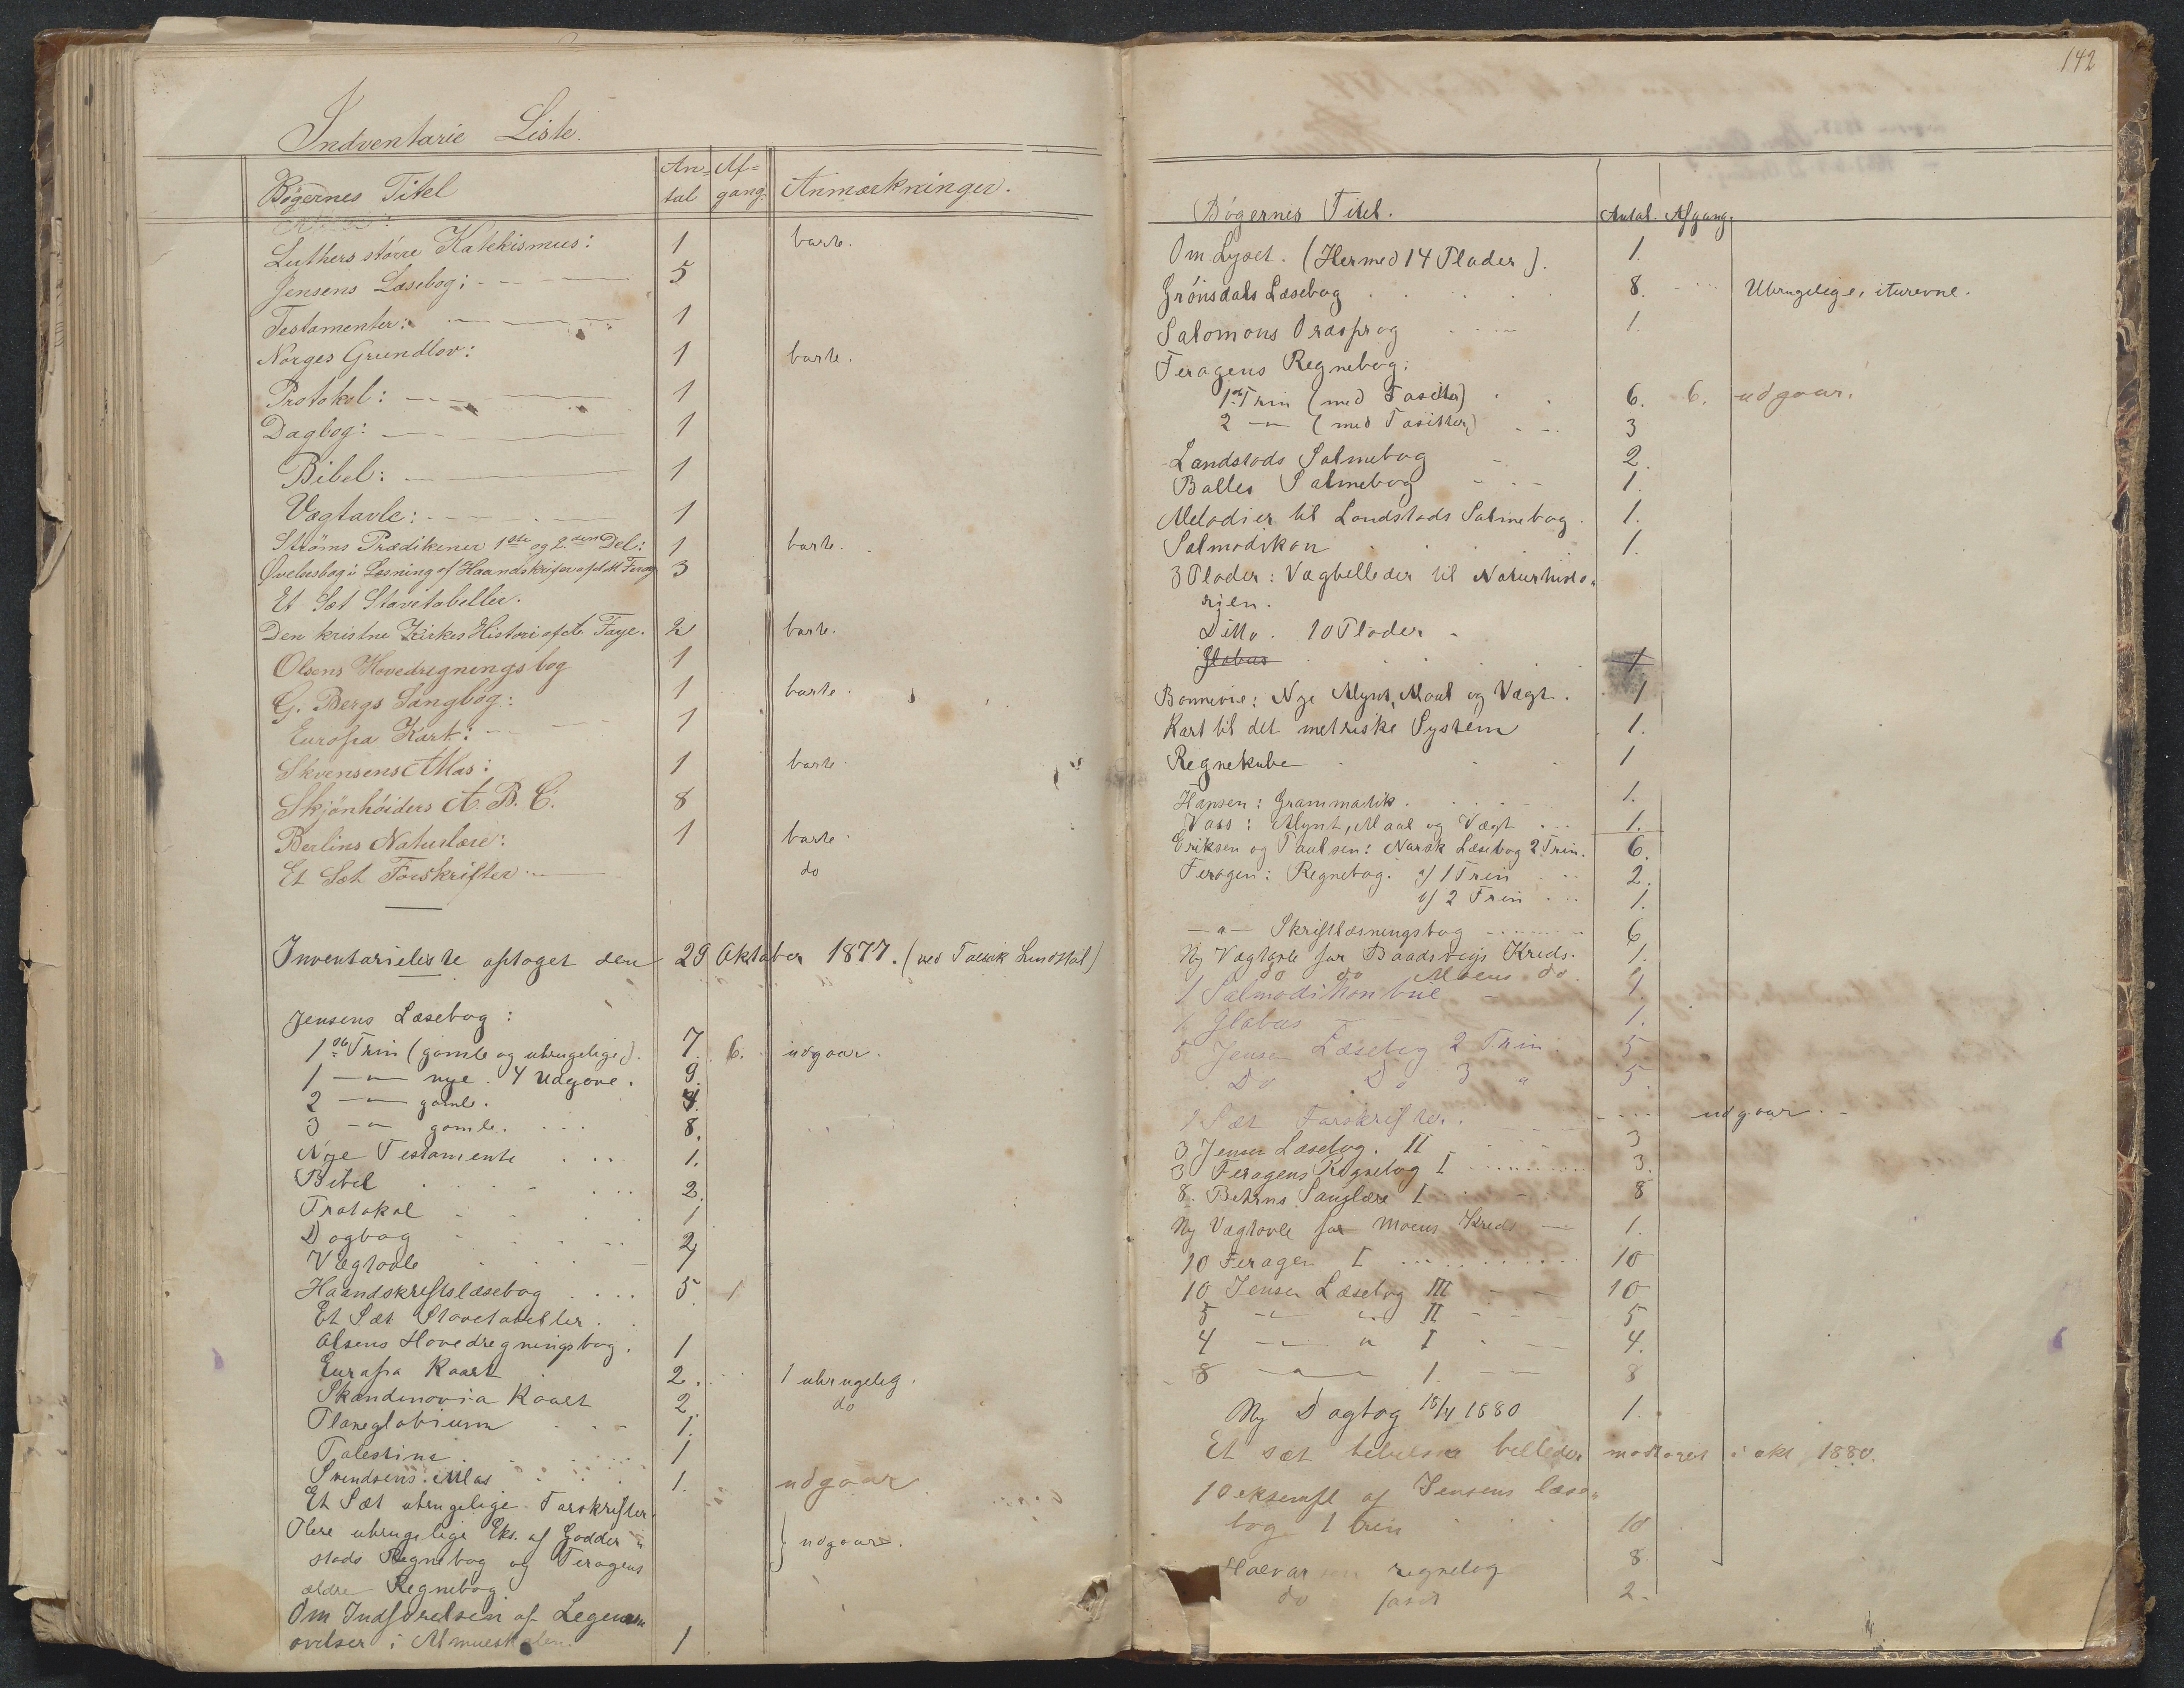 Indventarie Liste.
Bøgernes Titel An- tal Af= gang. Anmærkninger.
Luthers større Katekismus: 1 borte.
Jensens Læsebog: 5
Testamenter: 1
Norges Grundlov: 1 borte.
Protokol: 1
Dagbog: 1
Bibel: 1
Vægtavle: 1
Strøms Prædikener 1ste og 2den Del: 1 borte.
Øvelsesbog i Læsning af Haandskrifter af 3
Et Sæt Stavetabeller.
Den kristne Kirkes Histori af A. Faye. 2 borte.
Olsens Hovedregningsbog 1
G. Bergs Sangbog: 1 borte.
Europa Kart: 1
Skvensens Atlas: 1 borte.
Skjönhöiders A. B. C. 8
Berlins Naturlære: 1 borte.
Et Sæt Forskrifter do
Inventarieliste optaget den 29 Oktober 1877. (ved Lundstøl)
Jensens Læsebog:
1ste Trin (gamle og ubrugelige). 7. 6. udgaar.
1 -"- nye. 4 Udgave. 9.
2 -"- gamle.
3 -"- gamle. 8.
Nye Testamente 1.
Bibel 2.
Protokol 1
Dagbog 2
Vægtavle 1
Haandskriftslæsebog 5. 1
Et Sæt Stavetabeller.
Olsens Hovedregningsbog. 1
Europa Kaart 2. 1 ubrugelig.
Skandinavia Kaart 2. do
Planeglobium 1.
Palestina 1
Svendsens Atlas 1. udgaar
Et Sæt ubrugelige Forskrifter.
Flere ubrugelige Eks. af Godder=
stads Regnebog og Feragens } udgaar.
ældre Regnebog
Om Indførelsen af Legems
øvelser i Almueskolen. 1
142
Bøgernes Titel. Antal. Afgang.
Om Lyset. (Hermed 14 Plader). 1.
Grönsdals Læsebog 8. Ubrugelige, iturevne.
Salomons Ordsprog 1.
Feragens Regnebog:
1ste Trin (med Fasitter) 6. 6. udgaar.
2 -"- (med Fasitter) 3
Landstads Salmebog 2.
Balles Salmebog 1.
Melodier til Landstads Salmebog. 1.
Salmodikon 1.
3 Plader: Vægbilleder til Naturhisto=
rien.
Ditto. 10 Plader
Globus 1
Bonnevie: Nye Mynt, Maal og Vægt. 1
Kart til det metriske System 1.
Regnekube 1
Hansen: Grammatik. 1.
Vass: Mynt, Maal og Vægt 1.
Eriksen og Paulsen: Norsk Læsebog 2 Trin. 6.
Feragen: Regnebog. a) 1 Trin 2.
b) 2 Trin 1.
-"- Skriftlæsningsbog 6
Ny Vægtavle for Baadsvigs Kreds. 1.
1 do do Moens do 1.
1 Salmodikonbue
1 Globus 1.
5 Jensen Læsebog 2 Trin. 5
Do Do 3 " 5.
1 Sæt Forskrifter. udgaar.
3 Jensen Læsebog. II 3
3 Feragens Regnebog I 3.
8. Behrns Sanglære I 8
Ny Vægtavle for Moens Kreds 1.
10 Feragen I 10
10 Jensen Læsebog III 10
5 -"- " II 5
4 -"- " I 4.
8 -"- 1. 8
Ny Dagbog 15/4 1880 1.
Et sæt bibelske billeder modtaget i okt. 1880.
10 eksempl af Jensens læse=
bog 1 trin 10
regnebog 8.
do fasit 2.